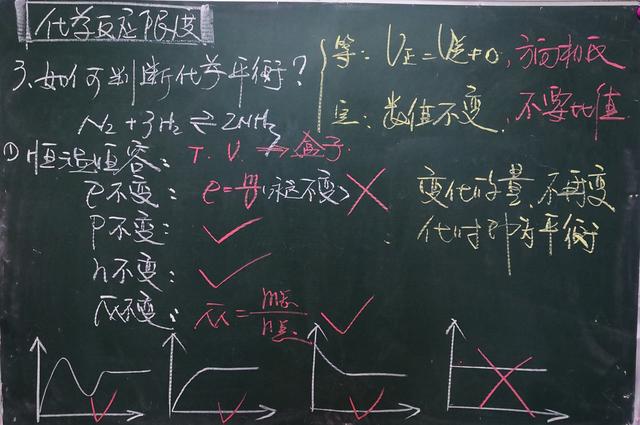 化学反应限度
3、如何判断化学平衡?
N₂+3H₂⇌2NH₃
等:V正=V逆≠0,方向相反
定:数值不变,不要比值
①恒温恒容:T.V.⇒盒子
ρ不变:ρ=m/V(永远不变)×
P不变:✓
n不变:✓
M不变:M=m总/n总 ✓
变化的量,不再变
化时即为平衡